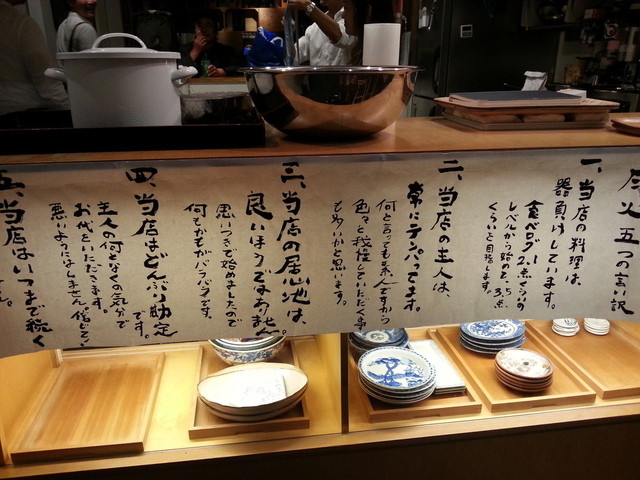 火五つの言い訳
一、当店の料理は、
器負けしています。
食べログ2点くらいの
レベルから始めて、3.5点
くらいを目指します。
二、当店の主人は、
常にテンパってます。
何と言っても素人ですから
色々と我慢していただく事
も多いかと思います。
三、当店の居心地は、
良いほうではありません。
思いつきで始めましたので
何もかもがバラバラです。
四、当店はどんぶり勘定
です。
主人の何となくの気分で
お代をいただきます。
悪いようにはしません。
五、当店はいつまで続く